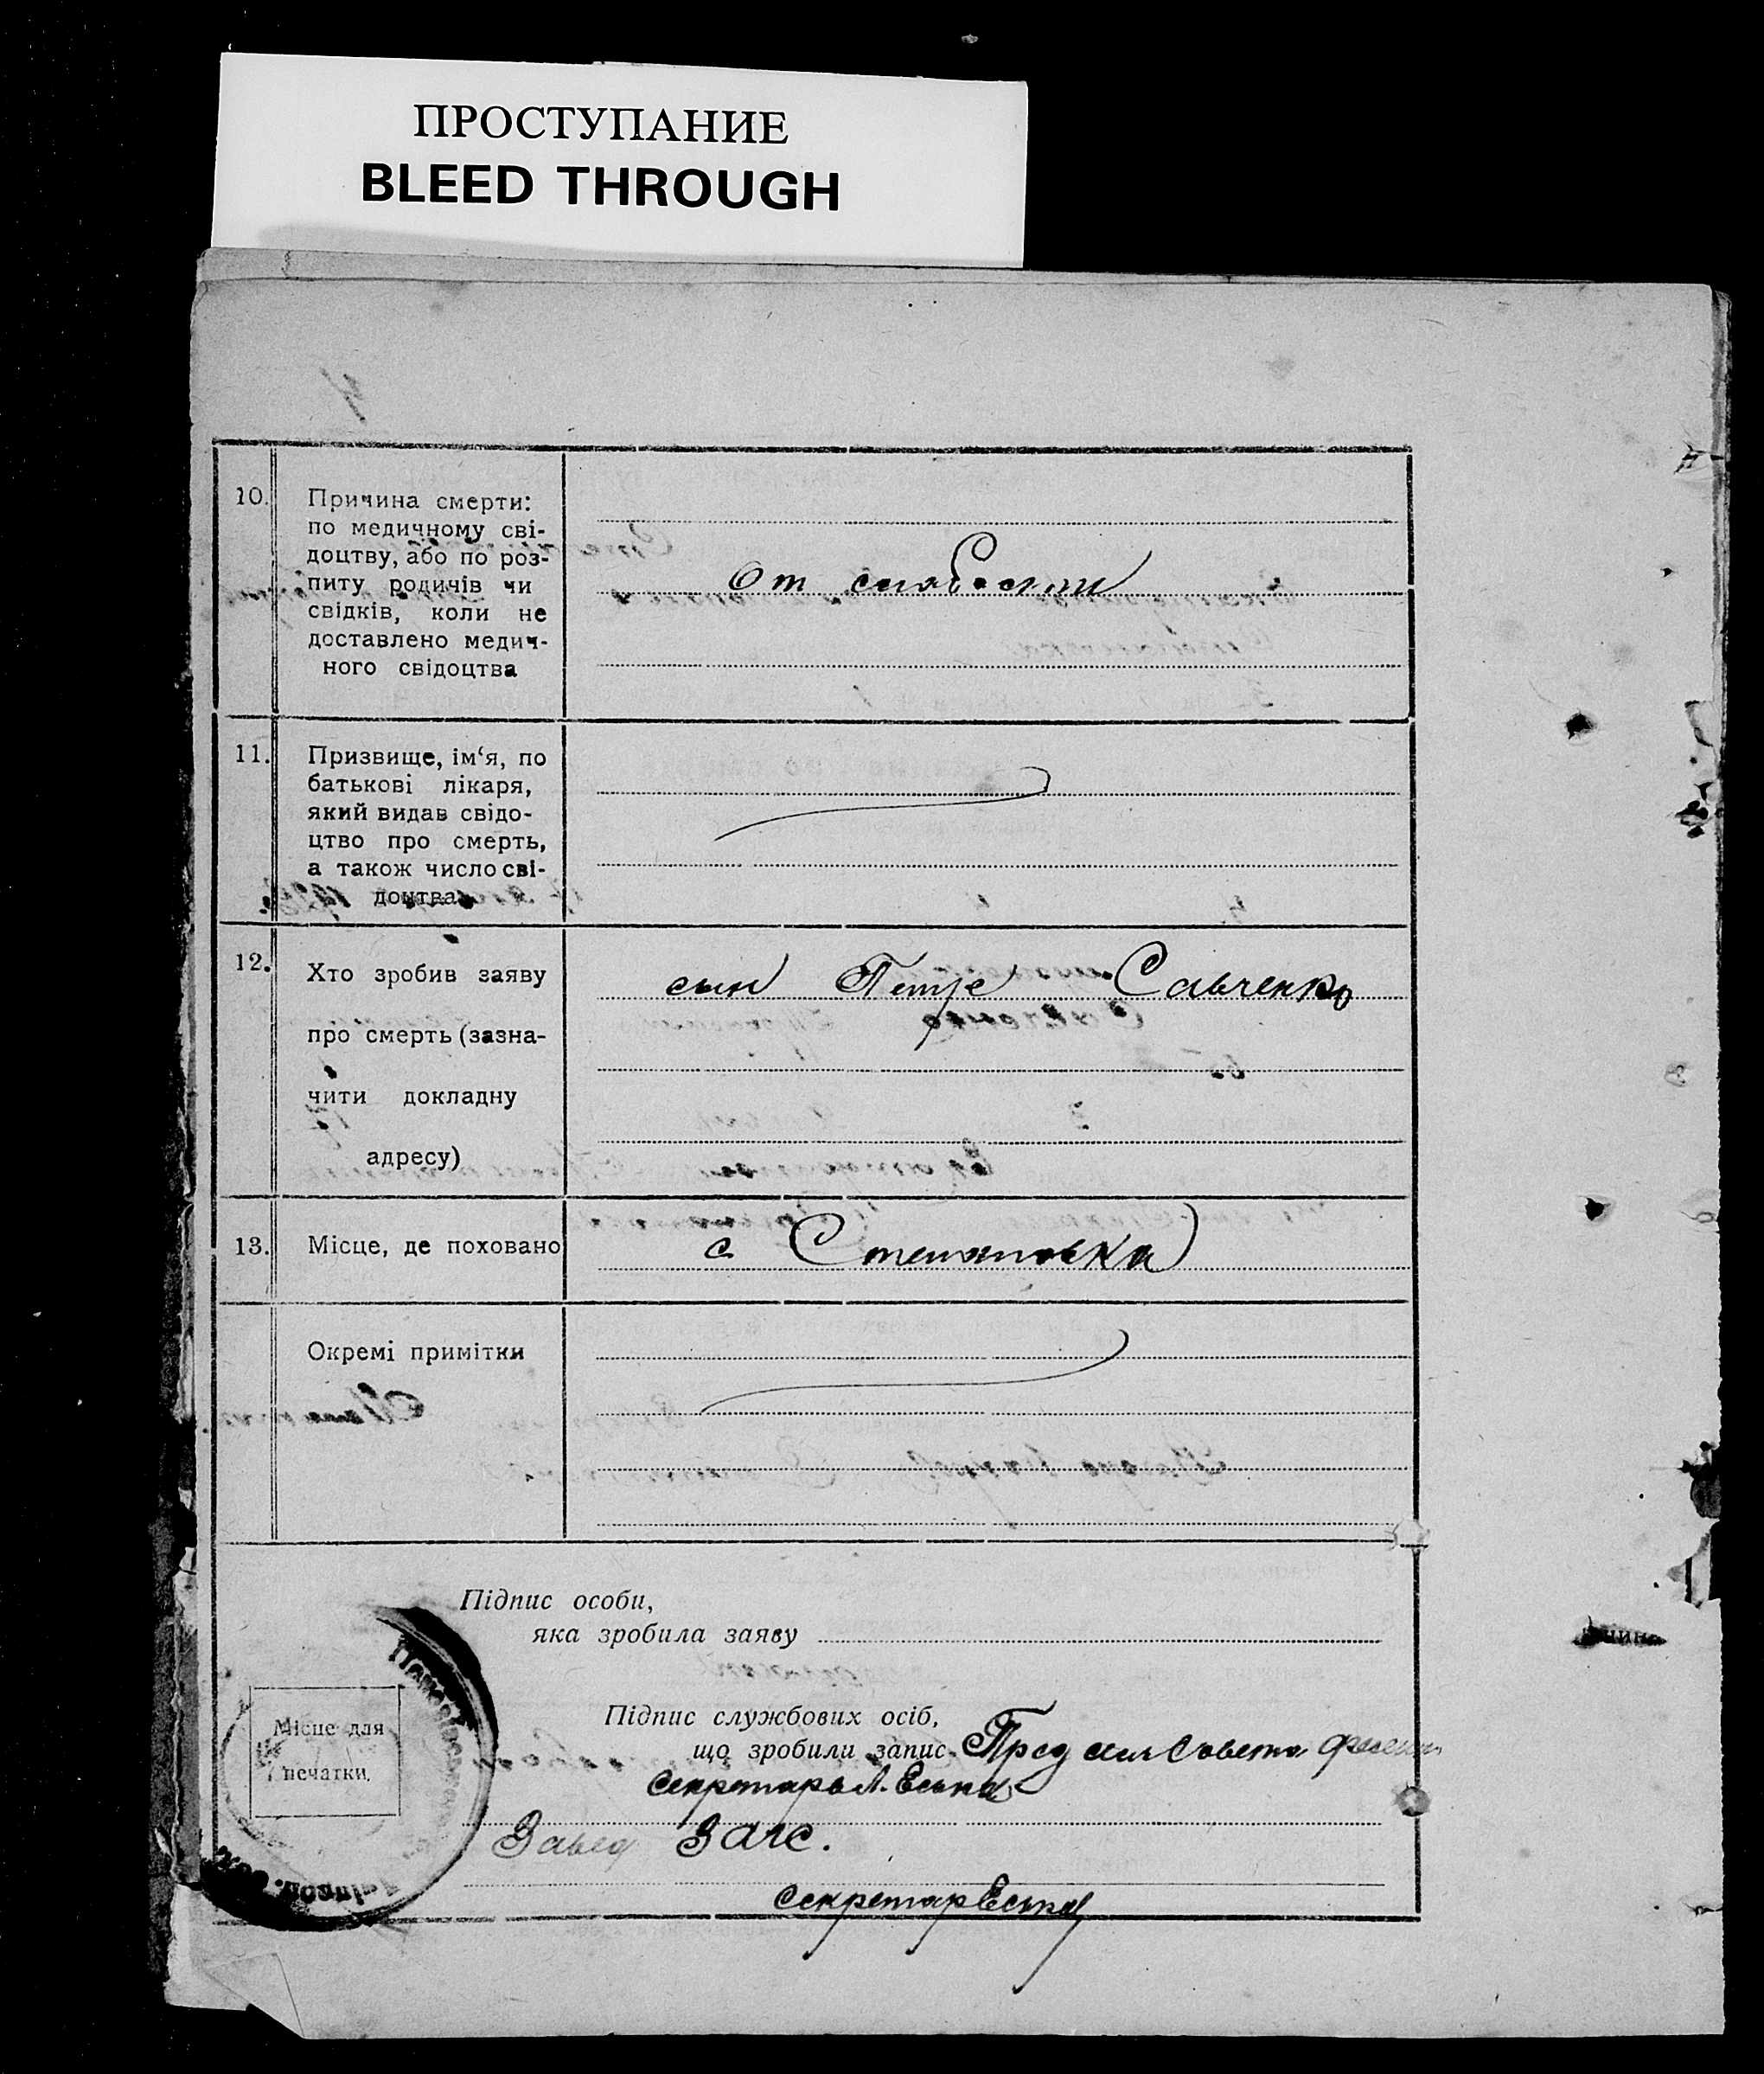 ПРОСТУПАНИЕ
BLEED THROUGH
10.
Причина смерти:
по медичному сві-
доцтву, або по роз-
питу родичів чи
свідків, коли не
доставлено медич-
ного свідоцтва
От слабости
11.
Призвище, ім‘я, по
батькові лікаря,
який видав свідо-
цтво про смерть,
а також число сві-
доцтва
12.
Хто зробив заяву
про смерть (зазна-
чити докладну
адресу)
сын Петре Савченко
13.
Місце, де поховано
с Степановка
Окремі примітки
Підпис особи,
яка зробила заяву
Підпис службових осіб,
що зробили запис
Пред сель Совета
секретарь Л.
Завед Загс.
секретар
Місце для
печатки.